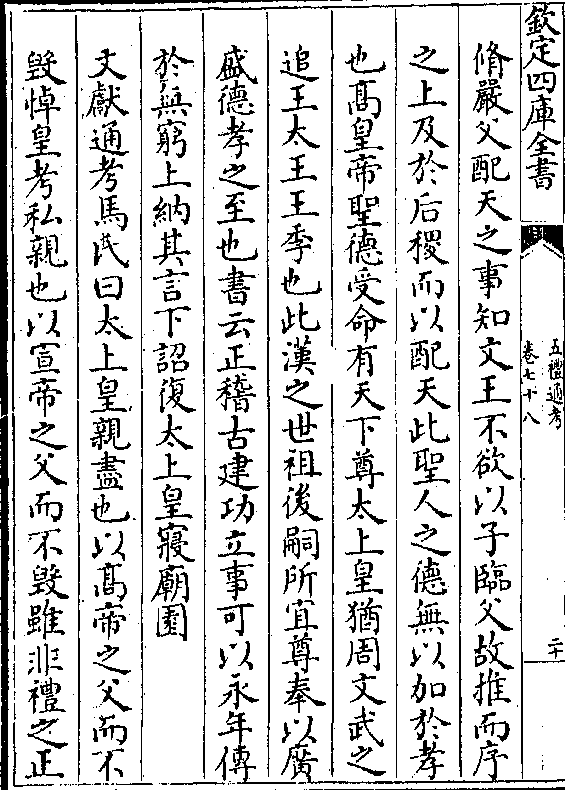 欽定四庫全書
五禮通考
卷七十八
二十
脩嚴父配天之事知文王不欲以子臨父故推而序
之上及於后稷而以配天此聖人之德無以加於孝
也髙皇帝聖德受命有天下尊太上皇猶周文武之
追王太王王季也此漢之世祖後嗣所宜尊奉以廣
盛德孝之至也書云正稽古建功立事可以永年傳
於無窮上納其言下詔復太上皇寢廟園
文獻通考馬氏曰太上皇親盡也以髙帝之父而不
毀悼皇考私親也以宣帝之父而不毀雖非禮之正